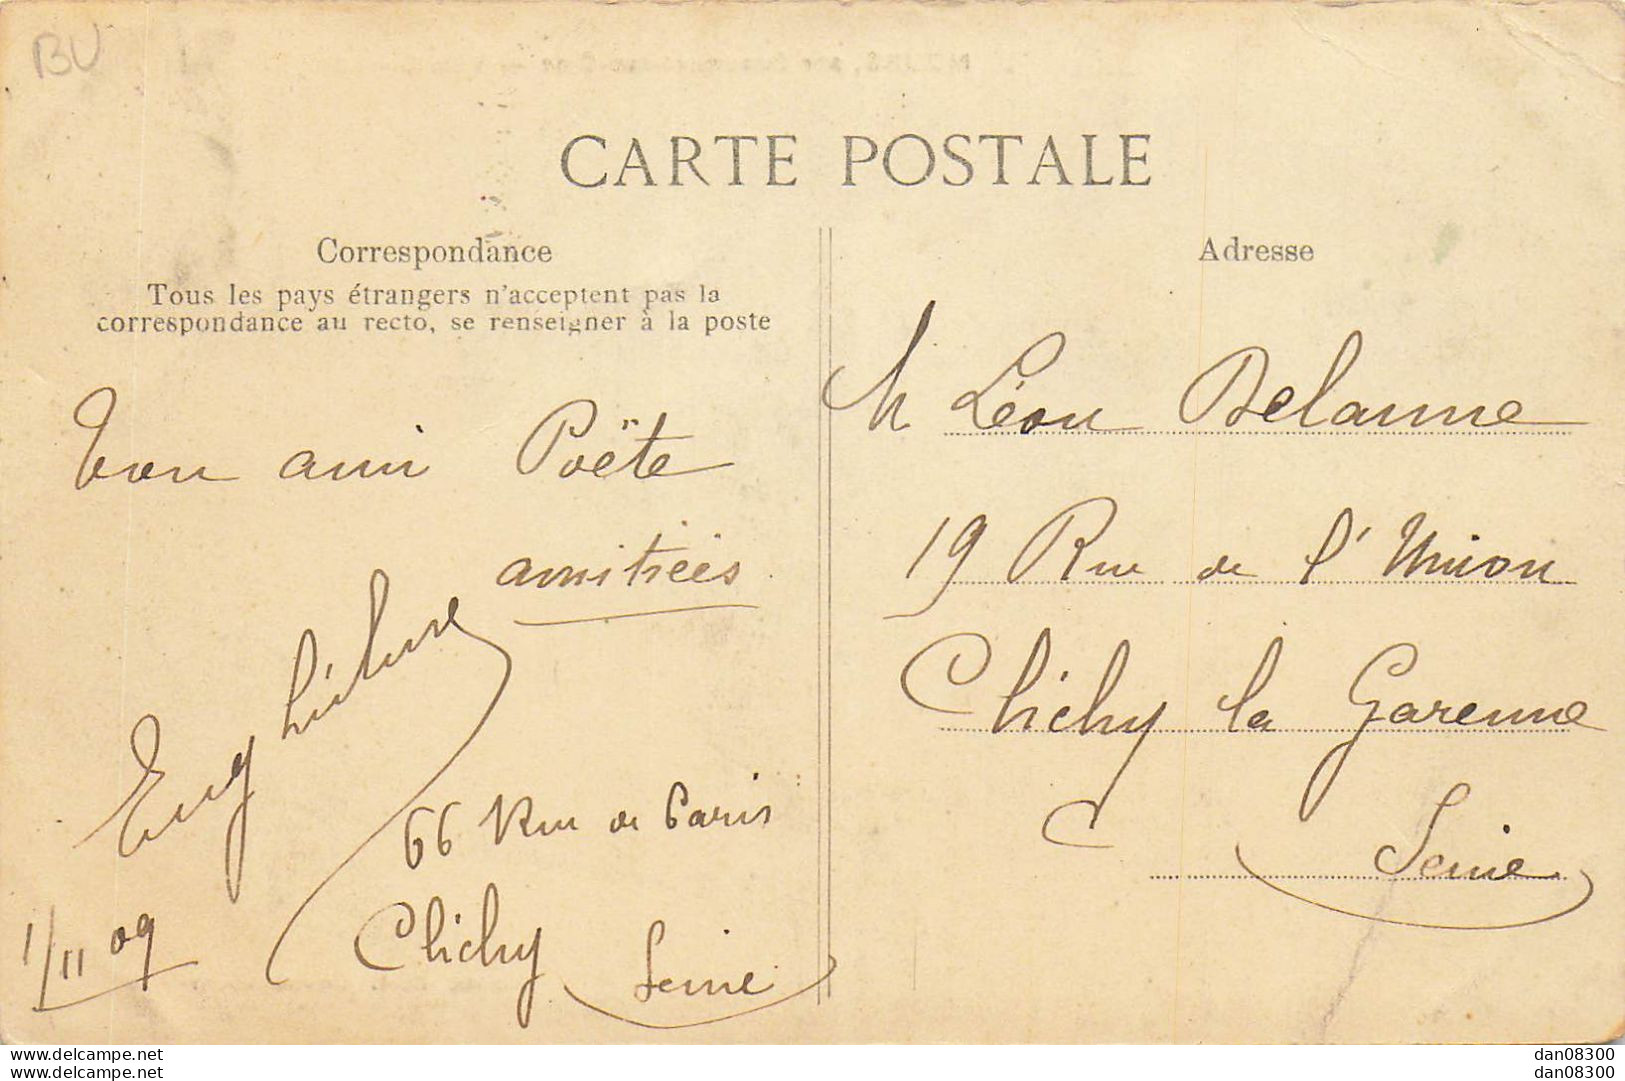 BU
CARTE POSTALE
Correspondance
Tous les pays étrangers n'acceptent pas la
correspondance au recto, se renseigner à la poste
Ton ami Poëte
amitiées
Eug
66 Rue de Paris
Clichy
Seine
1/11 09
Adresse
M Léon Delanne
19 Rue de l'Union
Clichy la Garenne
Seine
www.delcampe.net
www.delcampe.net
dan08300
dan08300